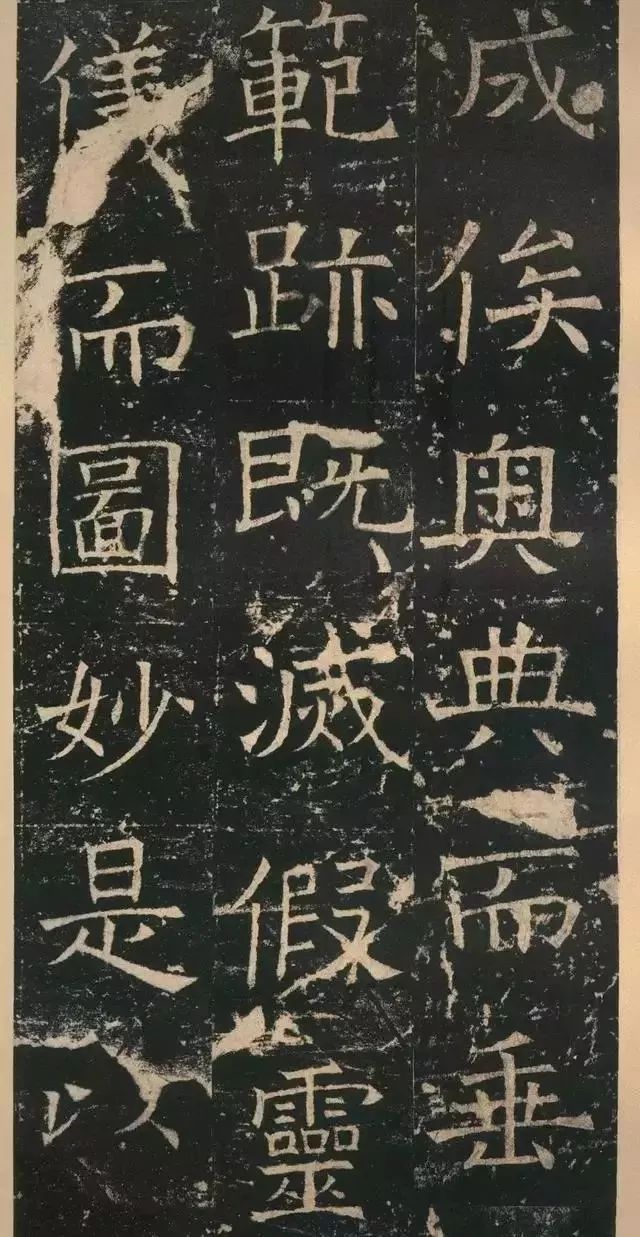 成俟奧典而垂
範跡既滅假靈
儀而圖妙是以